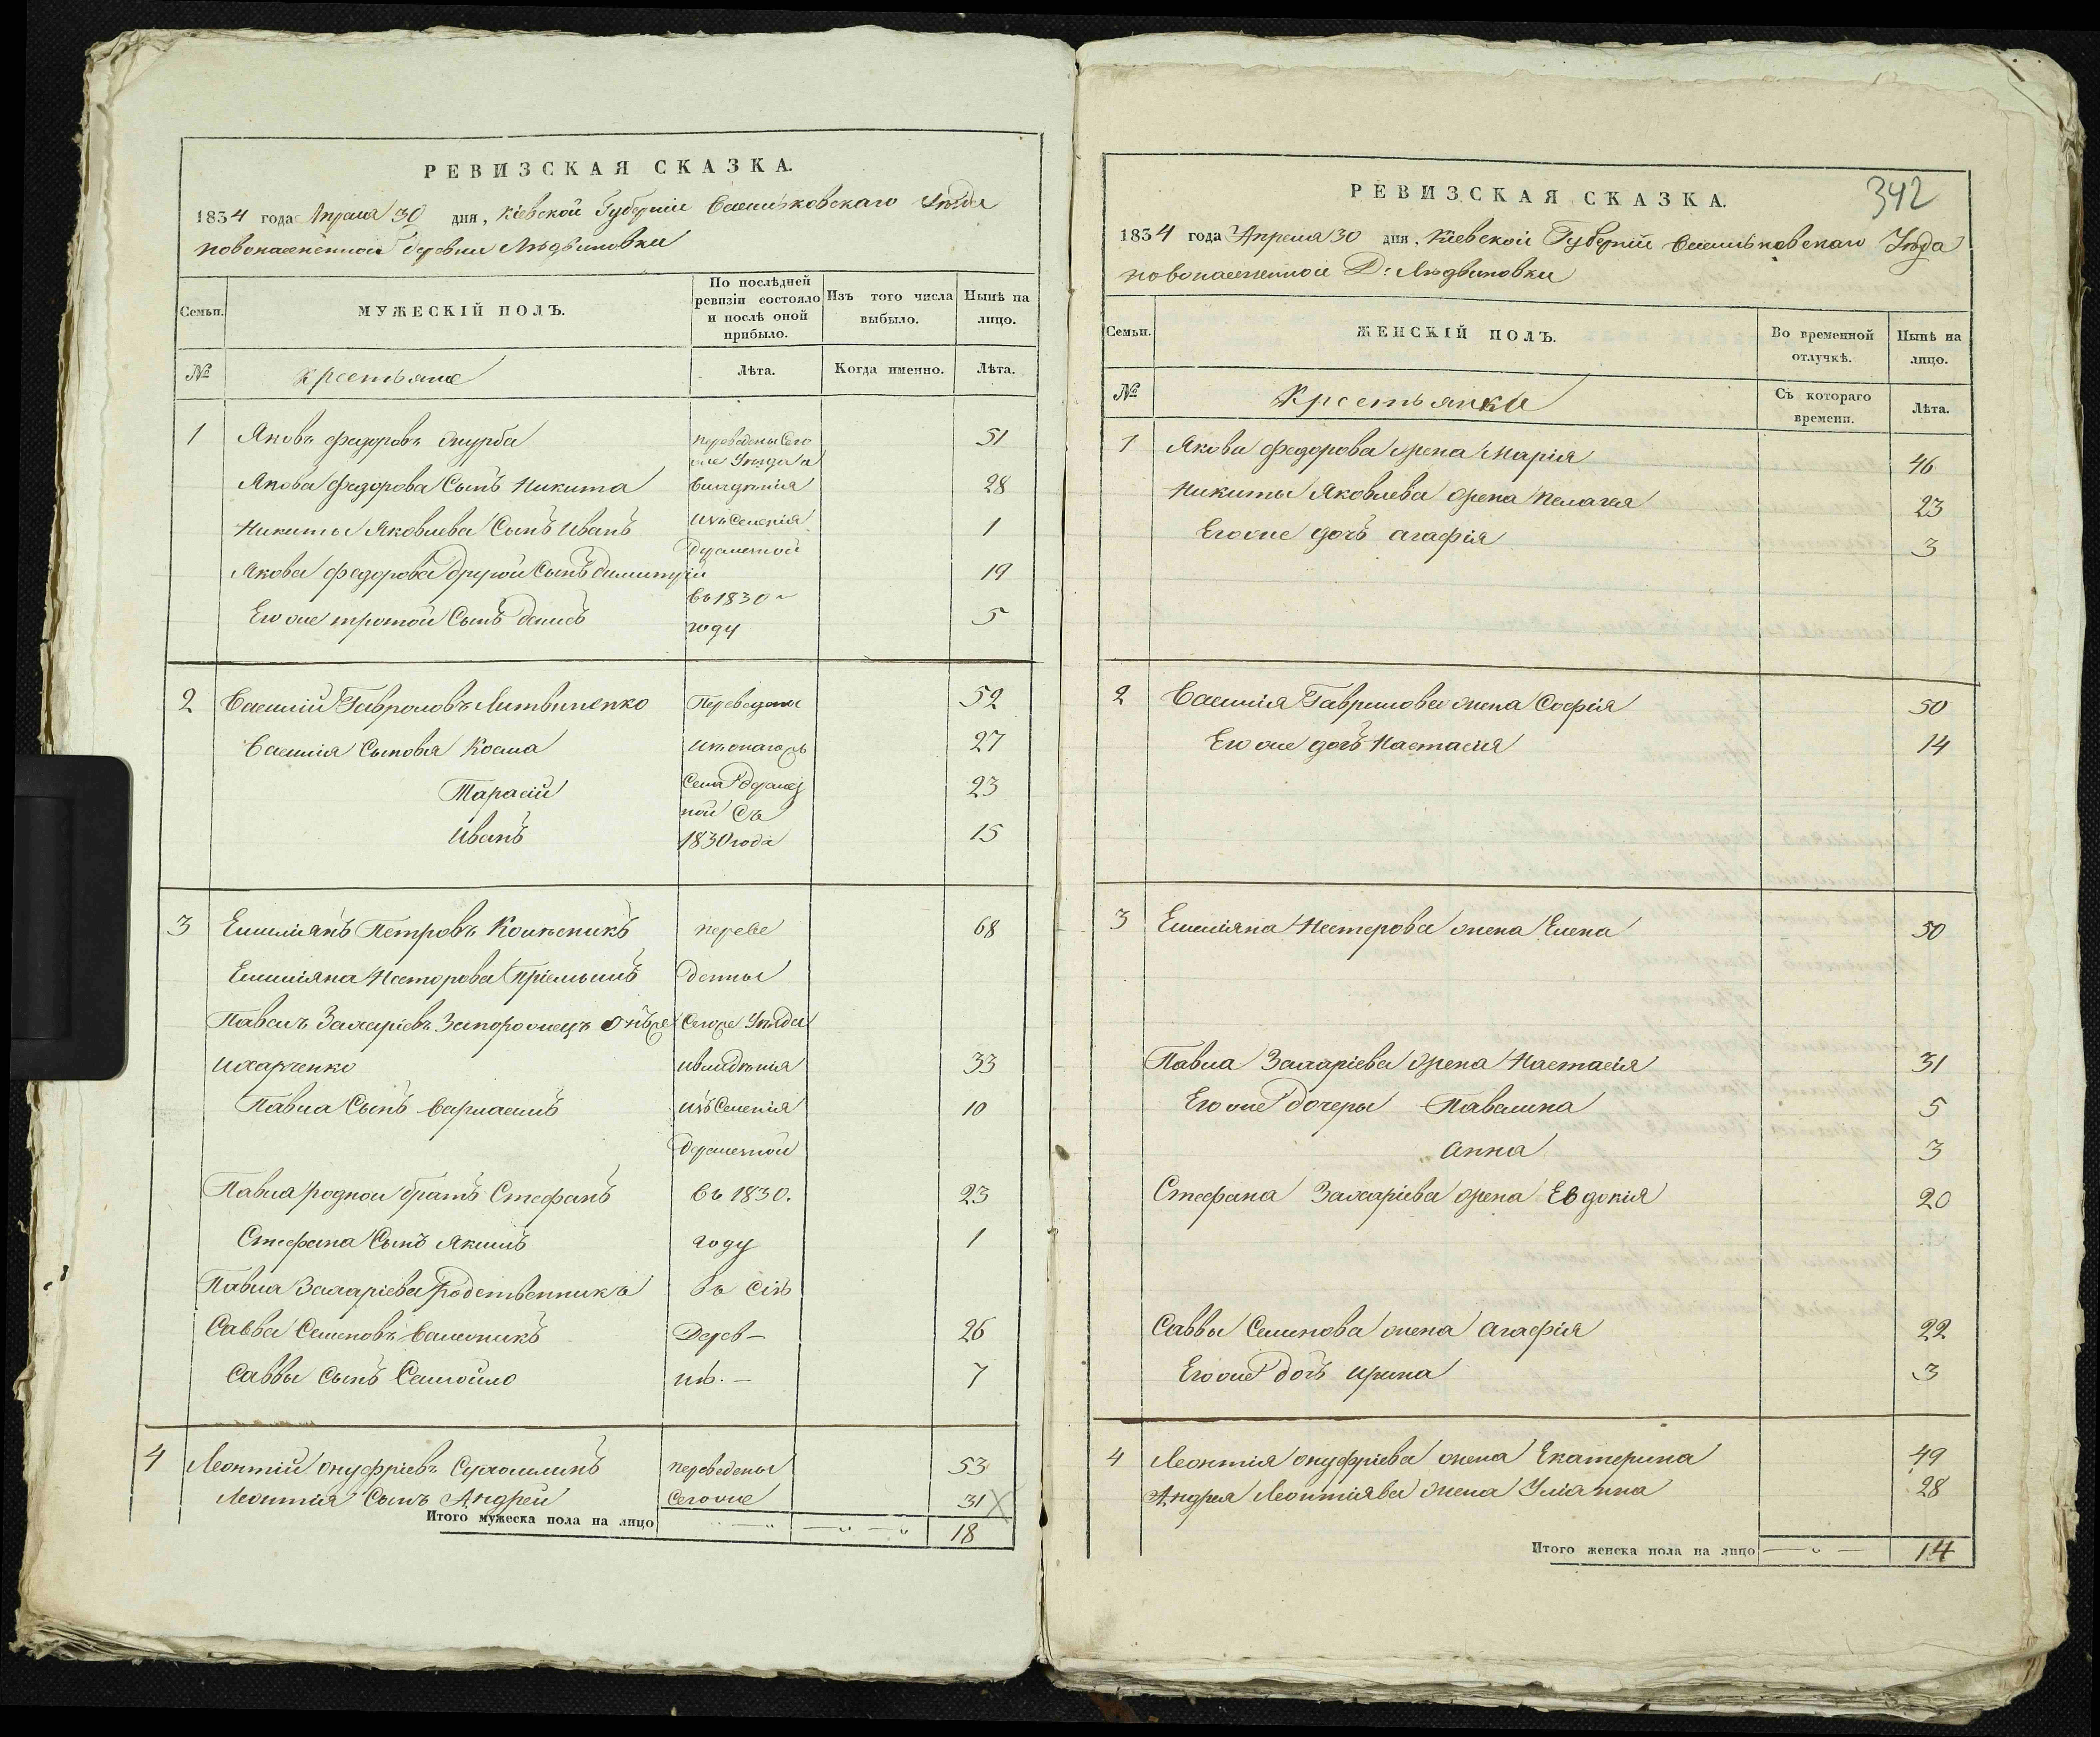 РЕВИЗСКАЯ СКАЗКА.
1834 года Апреля 30 дня, Кіевской Губерніи Васильковскаго Уѣзда
новонаселенной деревни Людвиновки
Семьи.
МУЖЕСКІЙ ПОЛЪ.
По послѣдней ревизіи состояло и послѣ оной прибыло.
Изъ того числа выбыло.
Нынѣ на лицо.
№
Крестьяне
Лѣта.
Когда именно.
Лѣта.
1 Яковъ Федоровъ переведены Сего 51
же Уѣзда и
Якова Федорова Сынъ Никита владѣнія 28
Никиты Яковлева Сынъ Иванъ изъ Селенія 1
Якова Федорова другой Сынъ Димитрій 19
въ 1830
Его же третой Сынъ Денисъ году 5
2 Василій Гавриловъ Литвиненко Переведены 52
Василія Сыновья Козма 27
Тарасій Села 23
ной Съ
Иванъ 1830 года 15
3 Емиліянъ Петровъ переве 68
Емиліяна Нестерова Пріемышъ денны
Павелъ Захаріевъ Запорожецъ Сегоже Уѣзда
Ихарченко ивладѣнія 33
Павла Сынъ Варлаамъ изъ Селенія 10
Павла родной братъ Стефанъ въ 1830. 23
Стефана Сынъ Якимъ году 1
Павла Захаріева родственникъ въ Сію
Савва Семеновъ Дерев- 26
Саввы Сынъ Самойло ню. 7
4 Леонтій Онуфріевъ переведены 53
Леонтія Сынъ Андрей Сегоже 31
Итого мужеска пола на лицо 18
342
РЕВИЗСКАЯ СКАЗКА.
1834 года Апреля 30 дня, Кіевской Губерніи Васильковскаго Уѣзда
новонаселенной Д: Людвиновки
Семьи.
ЖЕНСКІЙ ПОЛЪ.
Во временной отлучкѣ.
Нынѣ на лицо.
№
Крестьянки
Съ котораго времени.
Лѣта.
1 Якова Федорова жена Марія 46
Никиты Яковлева жена Пелагея 23
Его же дочь Агафія 3
2 Василія Гаврилова жена Софія 50
Его же дочь Настасія 14
3 Емиліяна Нестерова жена Елена 50
Павла Захаріева жена Настасія 31
Его же дочеры Павлина 5
Анна 3
Стефана Захаріева жена Евдокія 20
Саввы Семенова жена Агафія 22
Его же дочь Ирина 3
4 Леонтія Онуфріева жена Екатерина 49
Андрея Леонтіява жена Уліанна 28
Итого женска пола на лицо 14